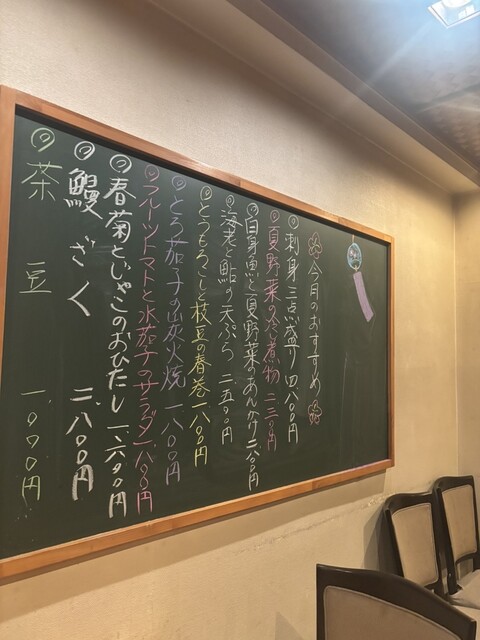 今月のおすすめ
◎刺身三点盛り 四、八〇〇円
◎夏野菜の冷し煮物 一、二三〇円
◎白身魚と夏野菜のあんかけ 二、八〇〇円
◎海老と鮎の天ぷら 二、五〇〇円
◎とうもろこしと枝豆の春巻 一、八〇〇円
◎とろ茄子の炭火焼 一、八〇〇円
◎フルーツトマトと水茄子のサラダ 一、八〇〇円
◎春菊とじゃこのおひたし 一、六〇〇円
◎鰻ざく 二、八〇〇円
◎茶豆 一、〇〇〇円